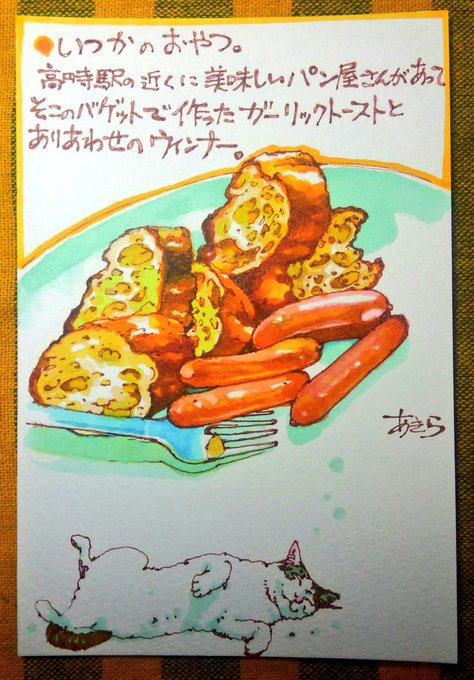 いつかのおやつ。
高円寺駅の近くに美味しいパン屋さんがあって
そこのバゲットで作ったガーリックトーストと
ありあわせのウィンナー。
あきら